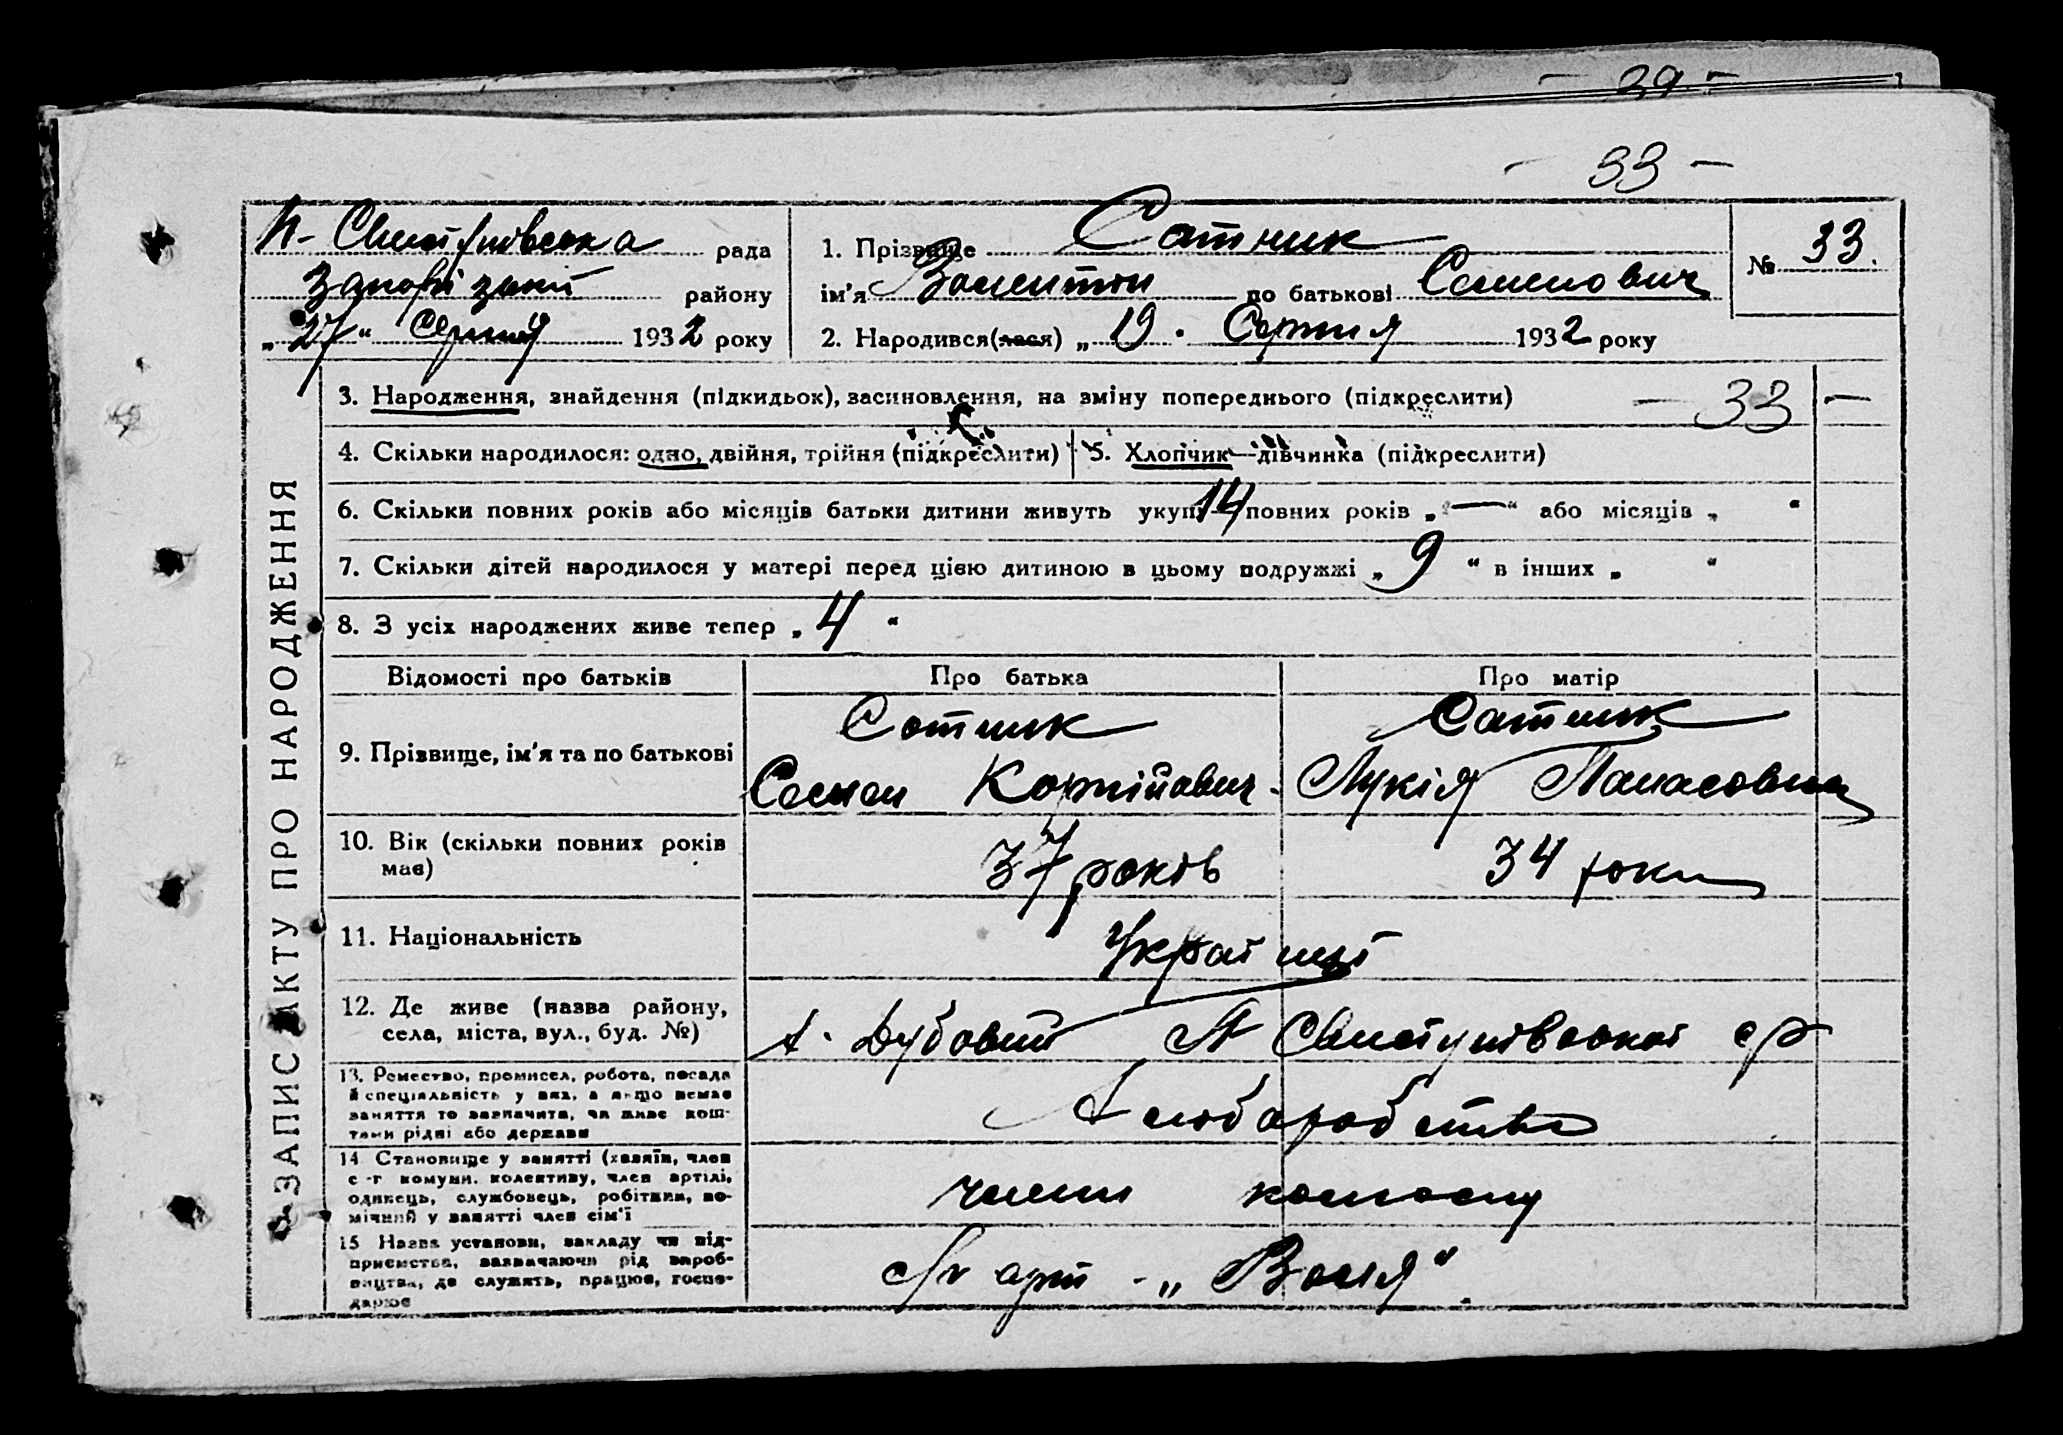 - 29 -
- 33 -
рада
Запорізький району
„27“ Серпня 1932 року
1. Прізвище Сотник
ім'я Валентин по батькові Семенович
№ 33.
2. Народився(лася) „19. Серпня 1932 року
ЗАПИС АКТУ ПРО НАРОДЖЕННЯ
3. Народження, знайдення (підкидьок), засиновлення, на зміну попереднього (підкреслити) - 33 -
4. Скільки народилося: одно, двійня, трійня (підкреслити) 5. Хлопчик—дівчинка (підкреслити)
6. Скільки повних років або місяців батьки дитини живуть укупі 14 повних років „—“ або місяців „ “
7. Скільки дітей народилося у матері перед цією дитиною в цьому подружжі „9“ в інших „ “
8. З усіх народжених живе тепер „4“
Відомості про батьків Про батька Про матір
9. Прізвище, ім'я та по батькові
Сотник
Семен Корнійович.
Сотник
Лукія Панасовна
10. Вік (скільки повних років має)
37 років 34 роки
11. Національність
Українці
12. Де живе (назва району, села, міста, вул., буд. №)
х. Дубовий Свистунівської с/р
13. Ремество, промисел, робота, посада й спеціяльність у них, а якщо немає заняття то зазначити, чи живе коштами рідні або держави
Хлібаробство
14 Становище у занятті (хазяїн, член с-г комуни. колективу, член артілі, одинець, службовець, робітник, помічний у занятті член сім'ї
члени колгоспу
15 Назва установи, закладу чи підприємства, зазначаючи рід виробництва, де служить, працює, господарює
с/г арт - „Воля“.